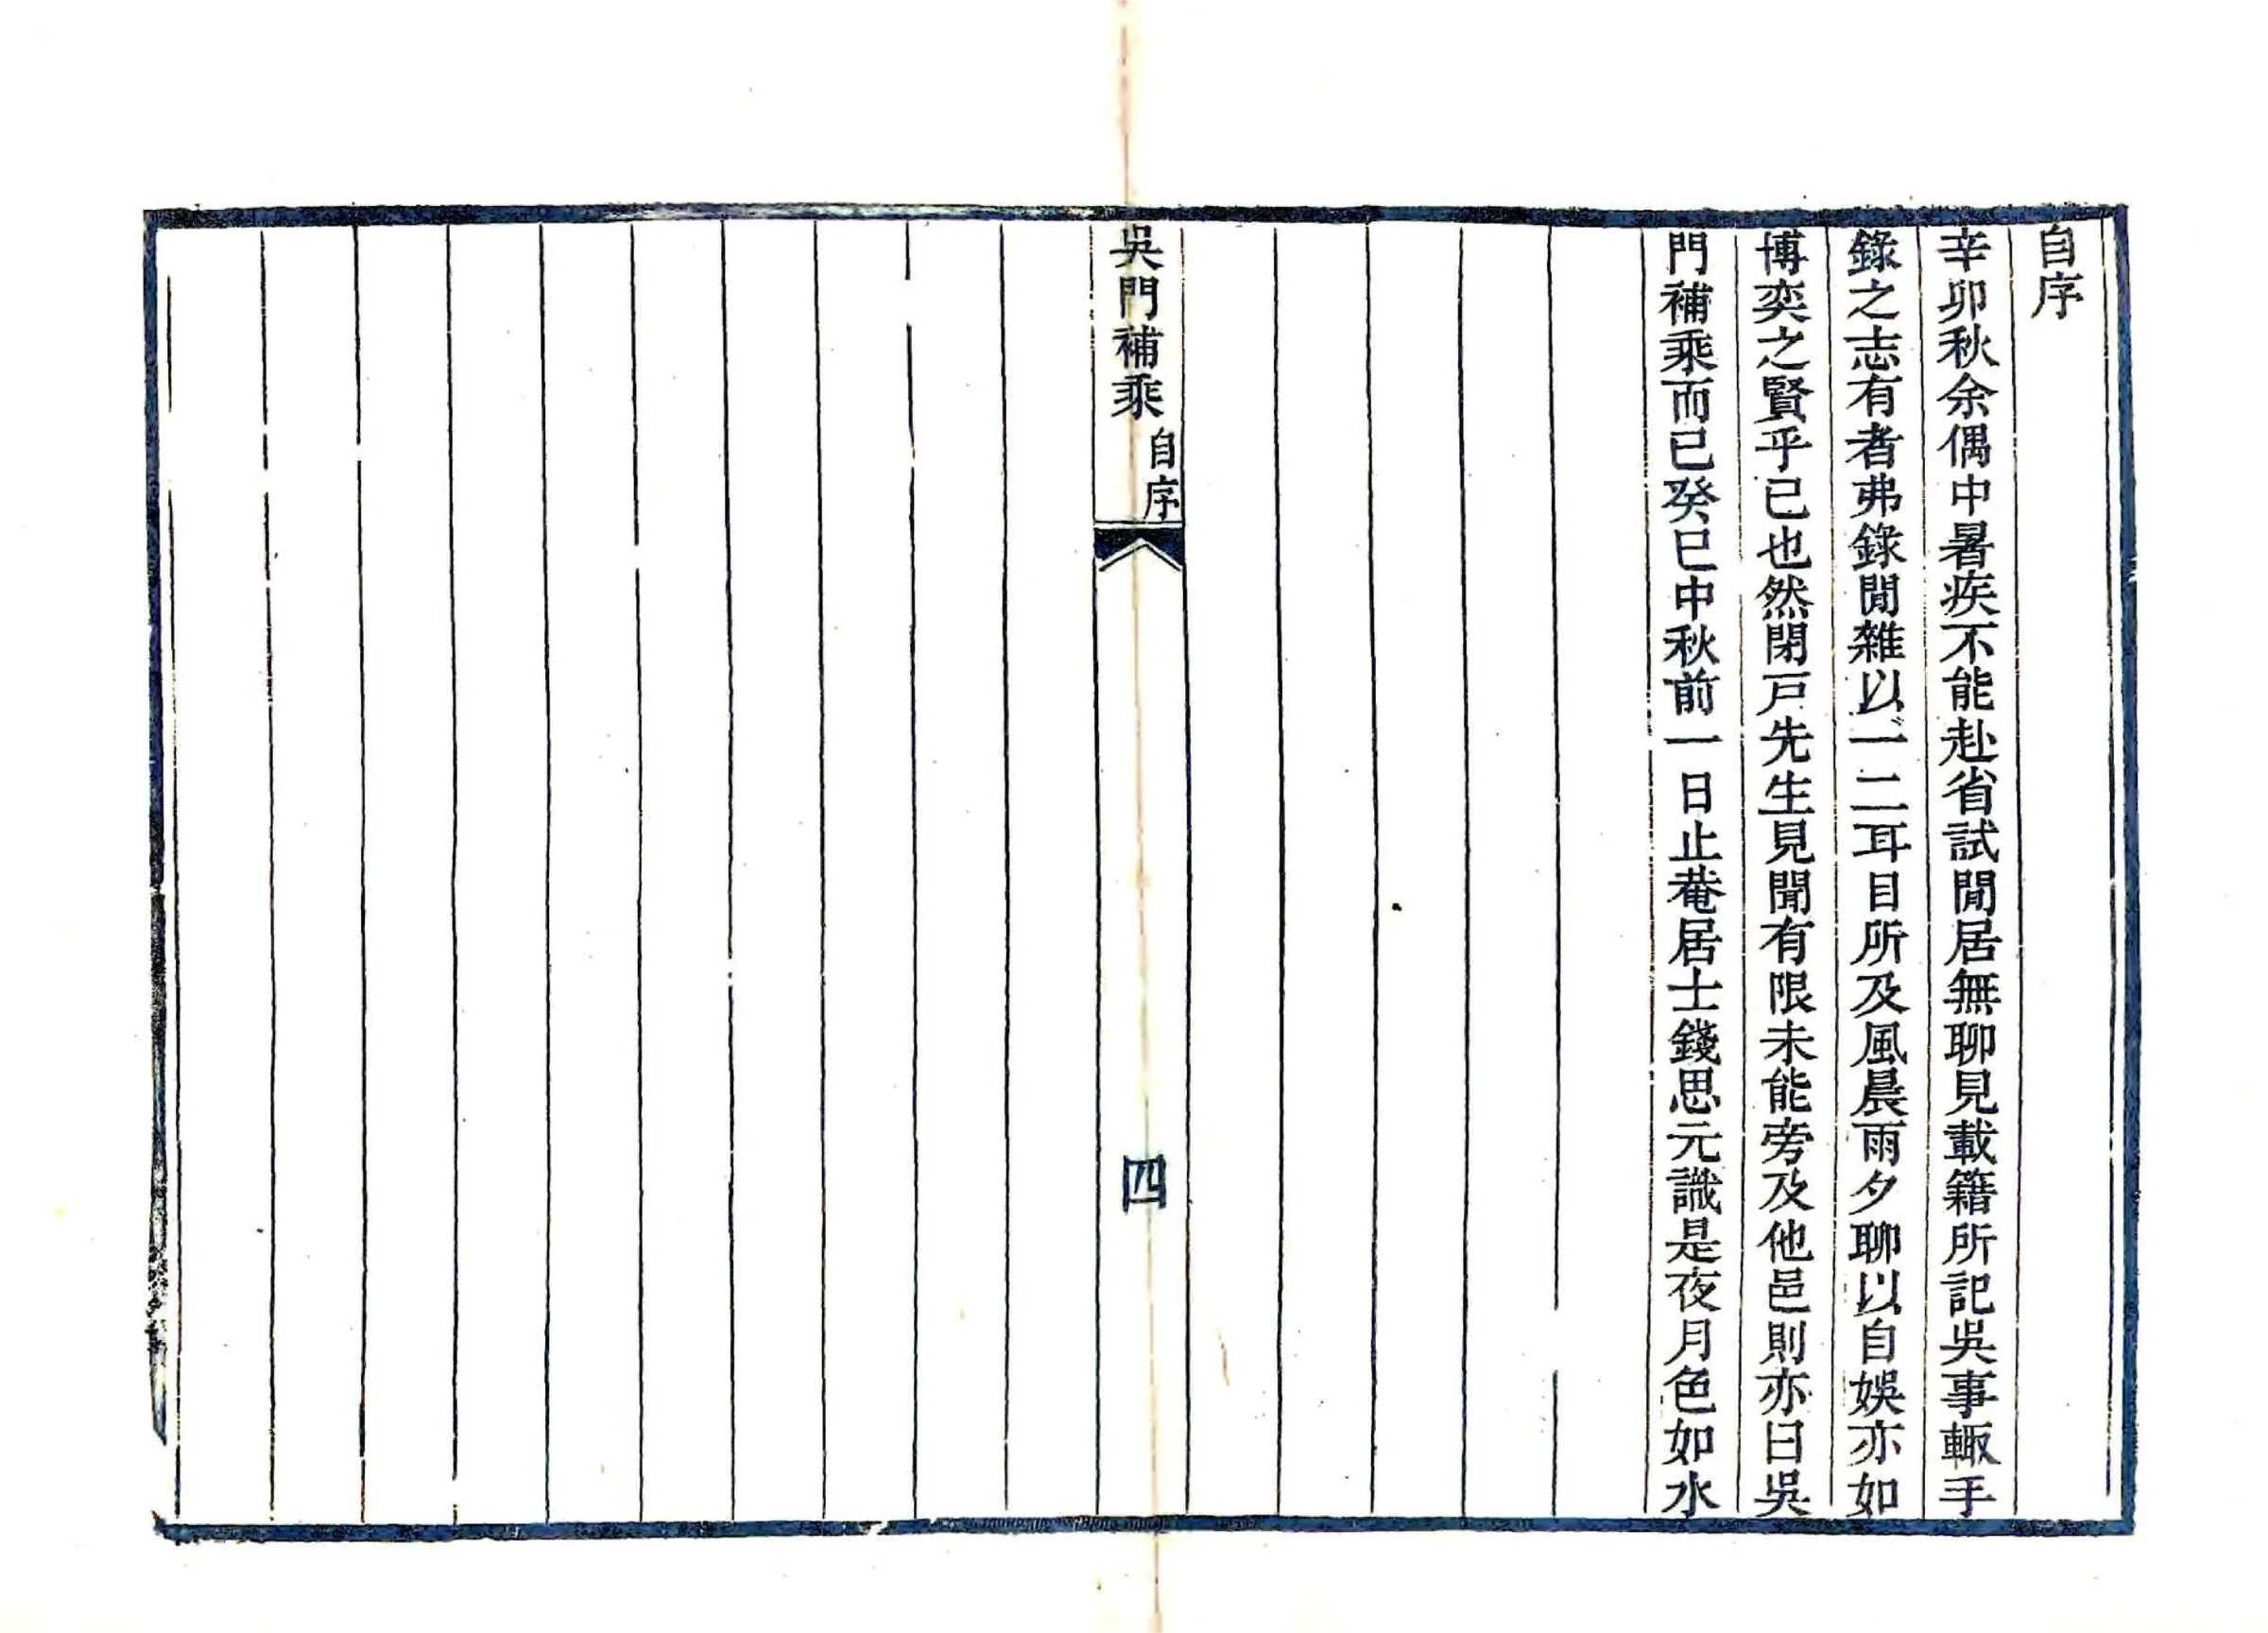 自序
辛卯秋余偶中暑疾不能赴省試閒居無聊見載籍所記吳事輙手
錄之志有者弗錄閒雜以一二耳目所及風晨雨夕聊以自娛亦如
博奕之賢乎已也然閉戸先生見聞有限未能旁及他邑則亦曰吳
門補乘而已癸巳中秋前一日止菴居士錢思元識是夜月色如水
吳門補乘
自序
四